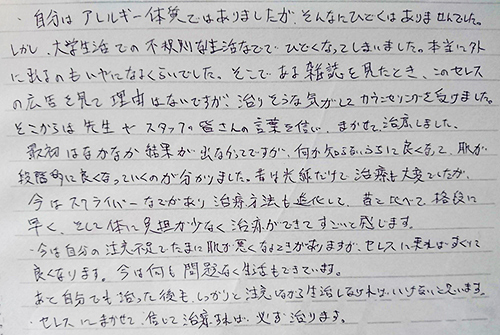 ・自分はアレルギー体質ではありましたが、そんなにひどくはありませんでした。
しかし、大学生活での不規則な生活などでひどくなってしまいました。本当に外
に出るのもいやになるくらいでした。そこである雑誌を見たとき、このセレス
の広告を見て理由はないですが、治りそうな気がしてカウンセリングを受けました。
そこからは先生やスタッフの皆さんの言葉を信じ、まかせて治療しました。
最初はなかなか結果が出なかってですが、何か知らないうちに良くなって、肌が
段階的に良くなっていくのが分かりました。昔は光線だけで治療も大変でしたが、
今はスクライバーなどがあり治療方法も進化して、昔と比べて格段に
早く、そして体に負担が少なく治療ができてすごいと感じます。
・今は自分の注意不足でたまに肌が悪くなるときがありますが、セレスに来ればすぐに
良くなります。今は何も問題なく生活もできています。
あと自分でも治った後も、しっかりと注意しながら生活しなければいけないと思います。
セレスにまかせて、信じて治療すれば、必ず治ります。